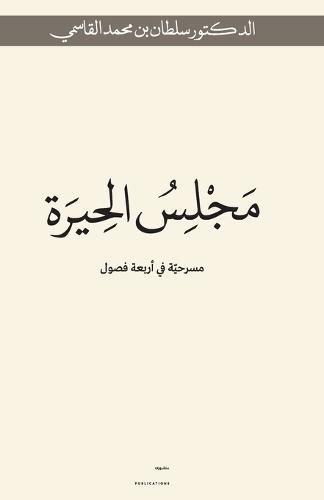 الدكتور سلطان بن محمد القاسمي
مَجْلِسُ الحِيرَة
مسرحيّة في أربعة فصول
PUBLICATIONS